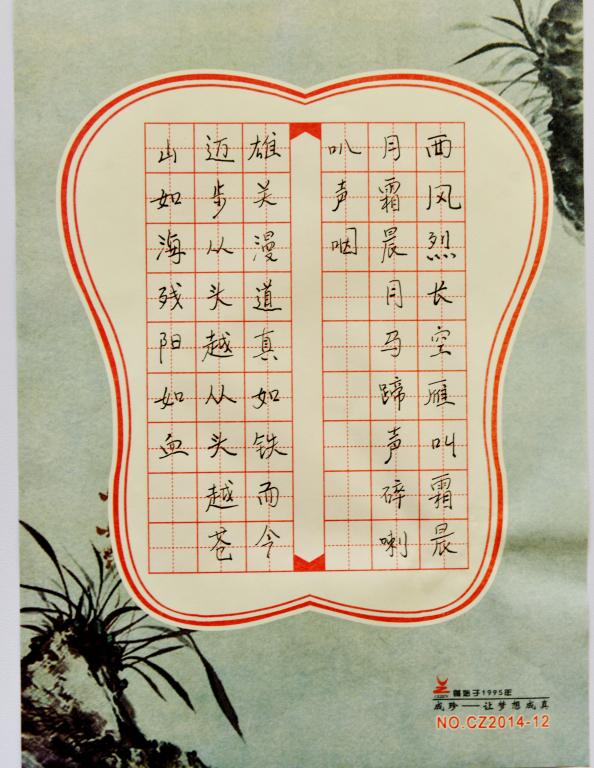 西风烈长空雁叫霜晨
月霜晨月马蹄声碎喇
叭声咽
雄关漫道真如铁而今
迈步从头越从头越苍
山如海残阳如血
始于1995年
成珍——让梦想成真
NO.CZ2014-12